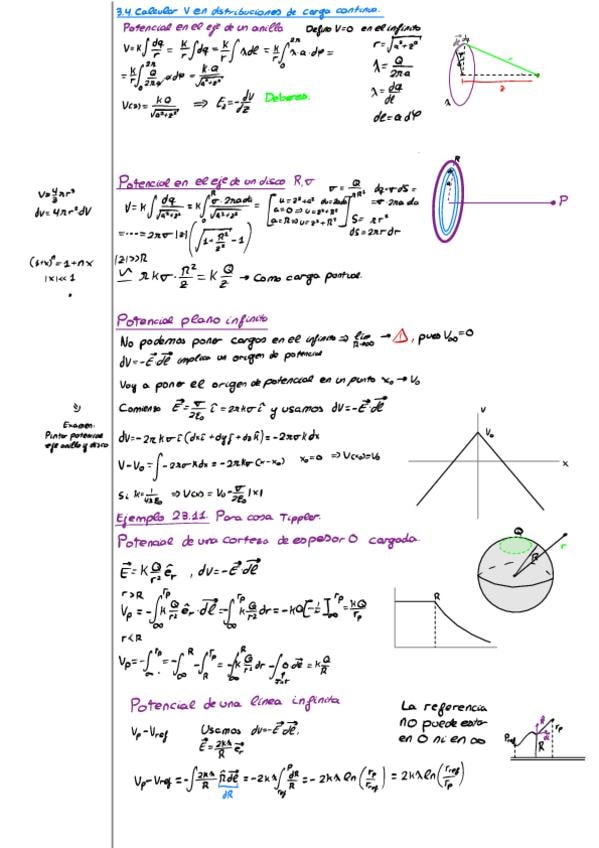 3.4 Calcular V en distribuciones de carga continua.
Potencial en el eje de un anillo Defino V=0 en el infinito
V=K∫dq/r = K/r ∫dq = K/r ∫λdl = K/r ∫₀^2π λ·a·dφ = r=√(a²+z²)
= K/r ∫₀^2π Q/2πa · a dφ = KQ/√(a²+z²) λ = Q/2πa
λ = dq/dl
V(z) = KQ/√(a²+z²) ⇒ E_z = -dV/dz Deberes.
dl = a dφ
Potencial en el eje de un disco R,σ
σ = Q/πR² dq=σ dS =
= σ·2πa da
V=4/3πr³
dV=4πr²dV
V=K∫dq/√(a²+z²) = K∫₀^R σ·2πada/√(a²+z²) = [u=z²+a² du=2ada
a=0⇒u=z²
a=R⇒u=z²+R²]
S=πr²
dS=2πr dr
=····=2πσ|z|(√(1+R²/z²) -1)
(1+x)ⁿ=1+nx
|x|<<1
|z|>>R
πkσ·R²/z = K Q/z → Como carga puntual.
Potencial plano infinito
No podemos poner cargos en el infinito ⇒ lim R→∞ → ⚠, pues V∞=0
dV=-E·dl implica un origen de potencial
Voy a poner el origen de potencial en un punto x₀ → V₀
Examen:
Pintar potencial
eje anillo y disco
Comienzo E=σ/2ε₀ î = 2πkσ î y usamos dV=-E·dl
dV=-2πkσ î (dxî+dyĵ+dzk̂) = -2πσkdx
V-V₀=∫-2πσkdx = -2πkσ(x-x₀) x₀=0 ⇒ V(x₀)=V₀
Si K=1/4πε₀ ⇒ V(x)=V₀-σ/2ε₀|x|
V
V₀
x
Ejemplo 23.11. Para casa Tippler.
Potencial de una corteza de espesor 0 cargada.
E=K Q/r² ê_r , dV=-E·dl
r>R
V_p=-∫∞^rp K Q/r² ê_r·dl = -∫∞^rp K Q/r² dr = -KQ[-1/r]∞^rp = KQ/r_p
r<R
V_p=-∫∞^rp = -∫∞^R -∫R^rp = -∫∞^R K Q/r² dr -∫0 dl = K Q/R
Q
R
r
R
Potencial de una línea infinita
V_p-V_ref Usamos dV=-E·dl,
E=2kλ/R ê_r
La referencia
no puede estar
en 0 ni en ∞
P_ref
R
r_p
V_p-V_ref=-∫2kλ/R R̂·dl = -2kλ∫ref^P dR/R = -2kλ ln(r_p/r_ref) = 2kλ ln(r_ref/r_p)
dR